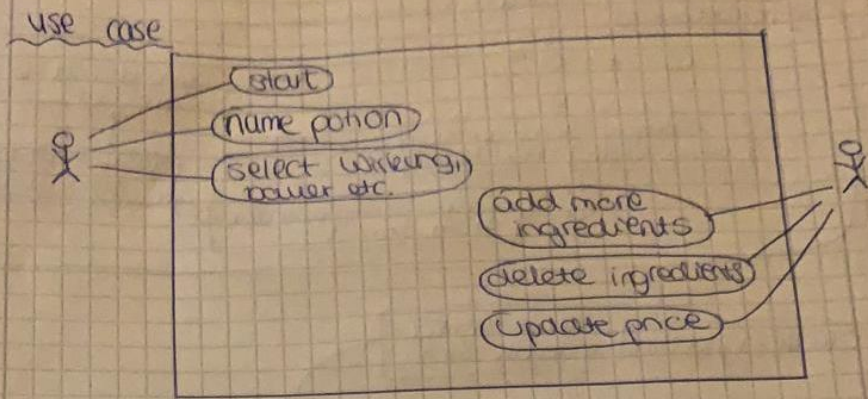 use case
start
name potion
select wirkung,
power etc.
add more
ingredients
delete ingredients
update price